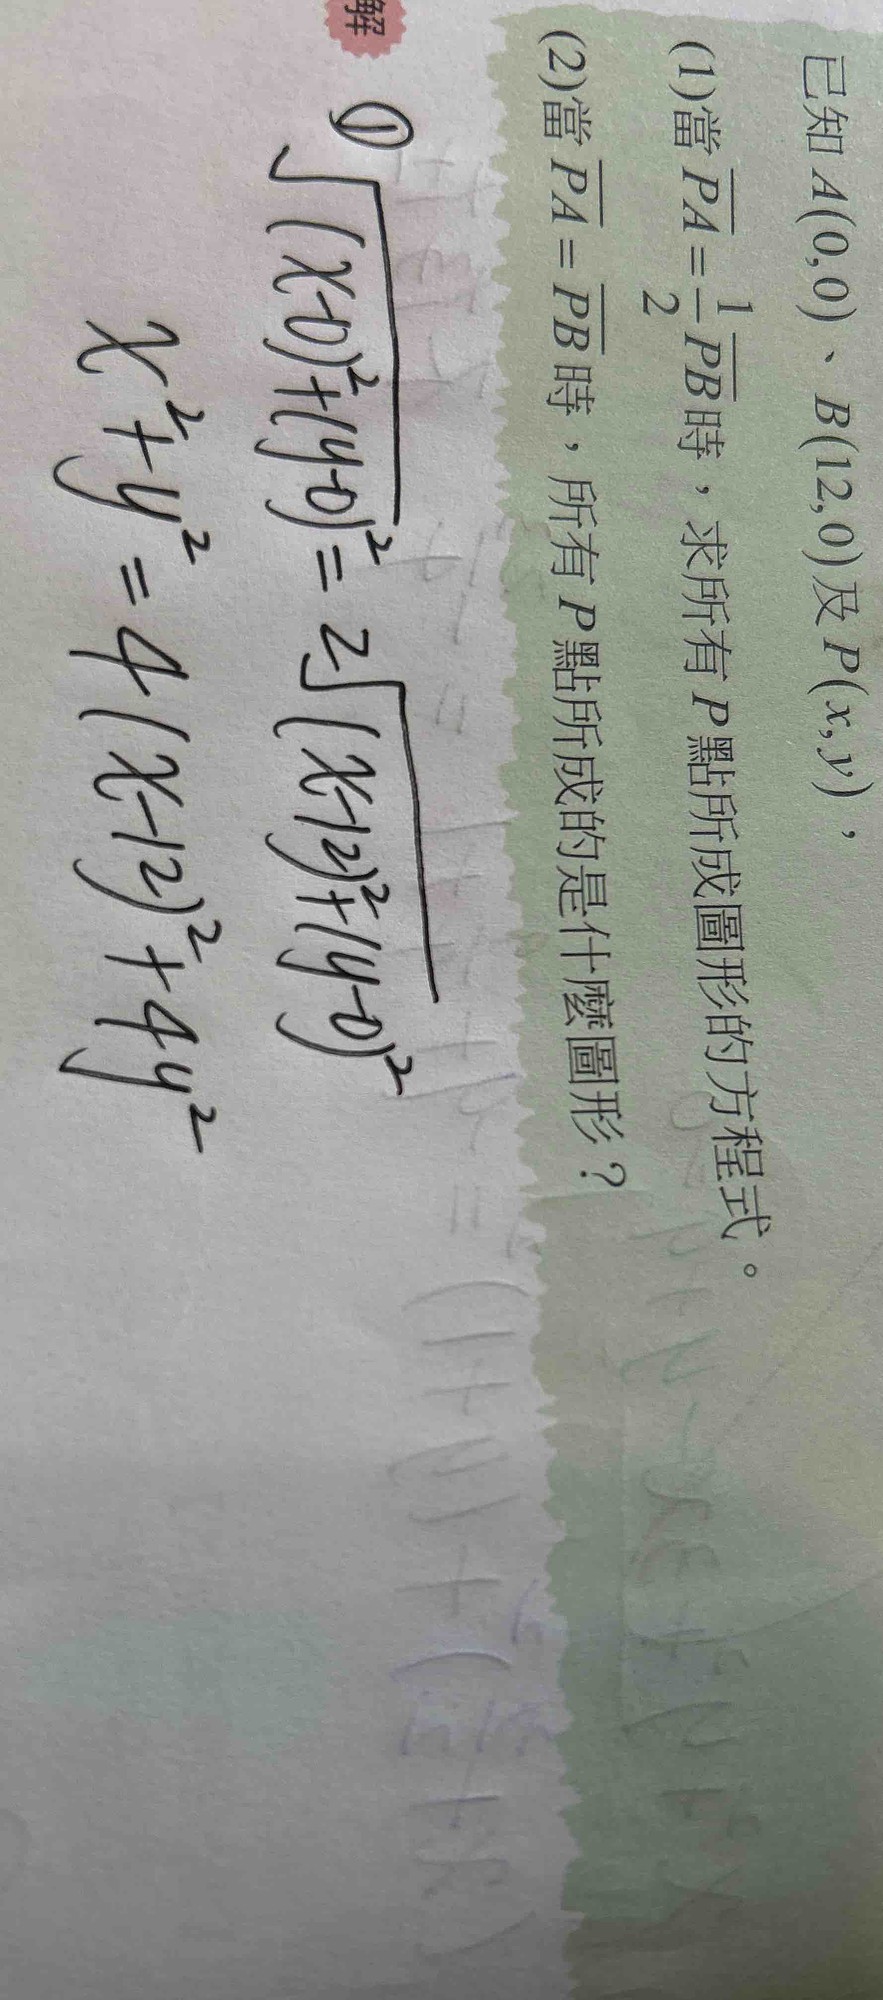 已知 A(0,0)、B(12,0)及P(x,y),
(1)當 \overline{PA}=\frac{1}{2}\overline{PB}時,求所有P點所成圖形的方程式。
(2)當 \overline{PA}=\overline{PB}時,所有P點所成的是什麼圖形?
解
① √((x-0)²+(y-0)²) = 2√((x-12)²+(y-0)²)
x²+y²=4(x-12)²+4y²